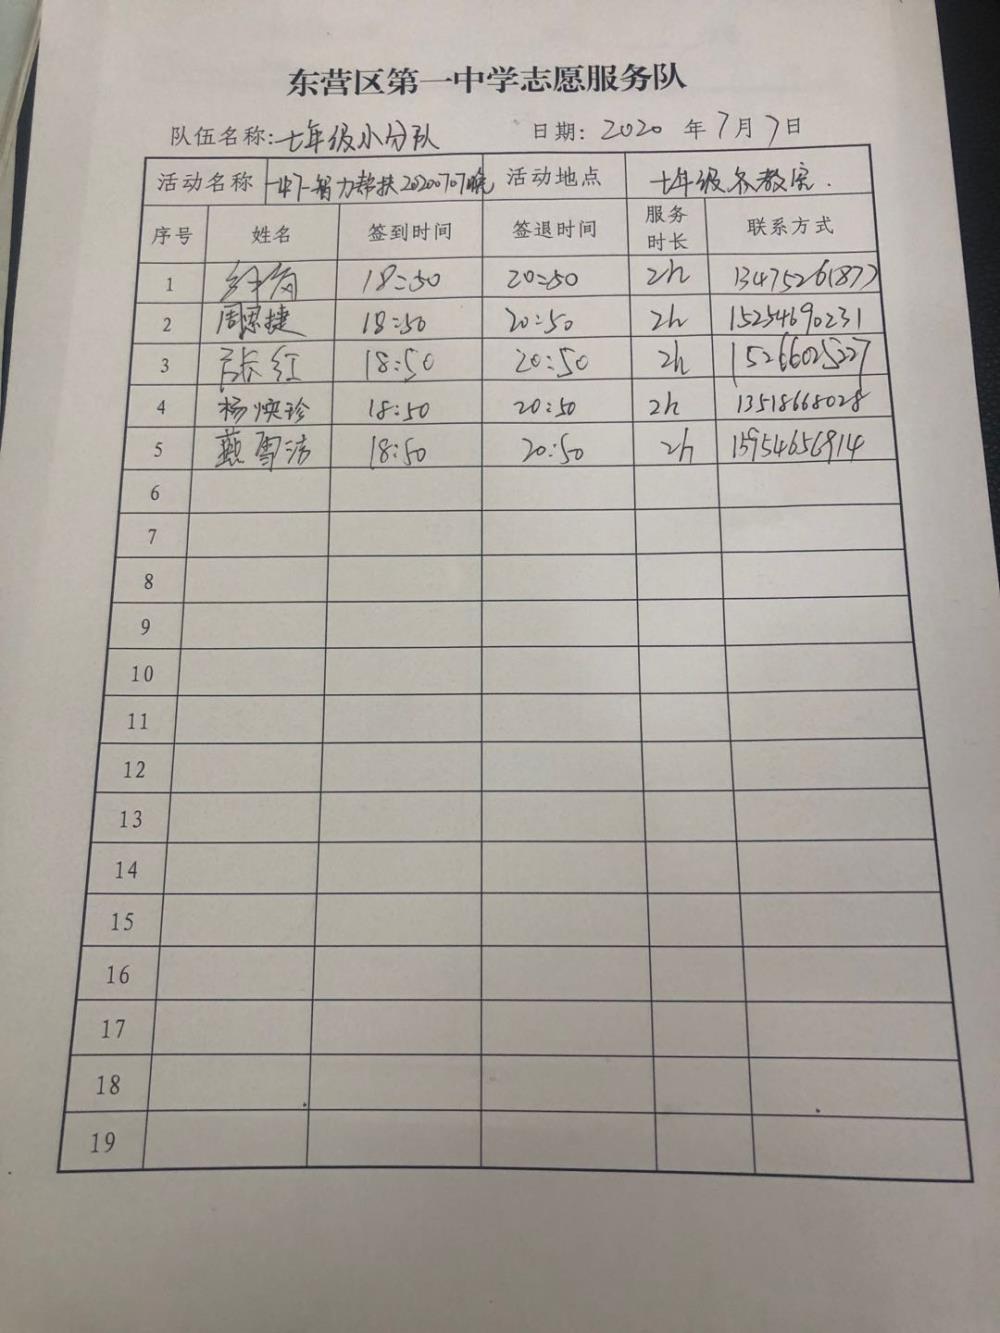 东营区第一中学志愿服务队
队伍名称:七年级小分队 日期: 2020 年 7 月 7 日
活动名称 智力帮扶20200707晚 活动地点 七年级各教室.
序号 姓名 签到时间 签退时间 服务时长 联系方式
1 18:50 20:50 2h 13475261877
2 周思捷 18:50 20:50 2h 15254690231
3 红 18:50 20:50 2h 15266025227
4 杨焕珍 18:50 20:50 2h 13518668028
5 燕雪洁 18:50 20:50 2h 15954656914
6
7
8
9
10
11
12
13
14
15
16
17
18
19